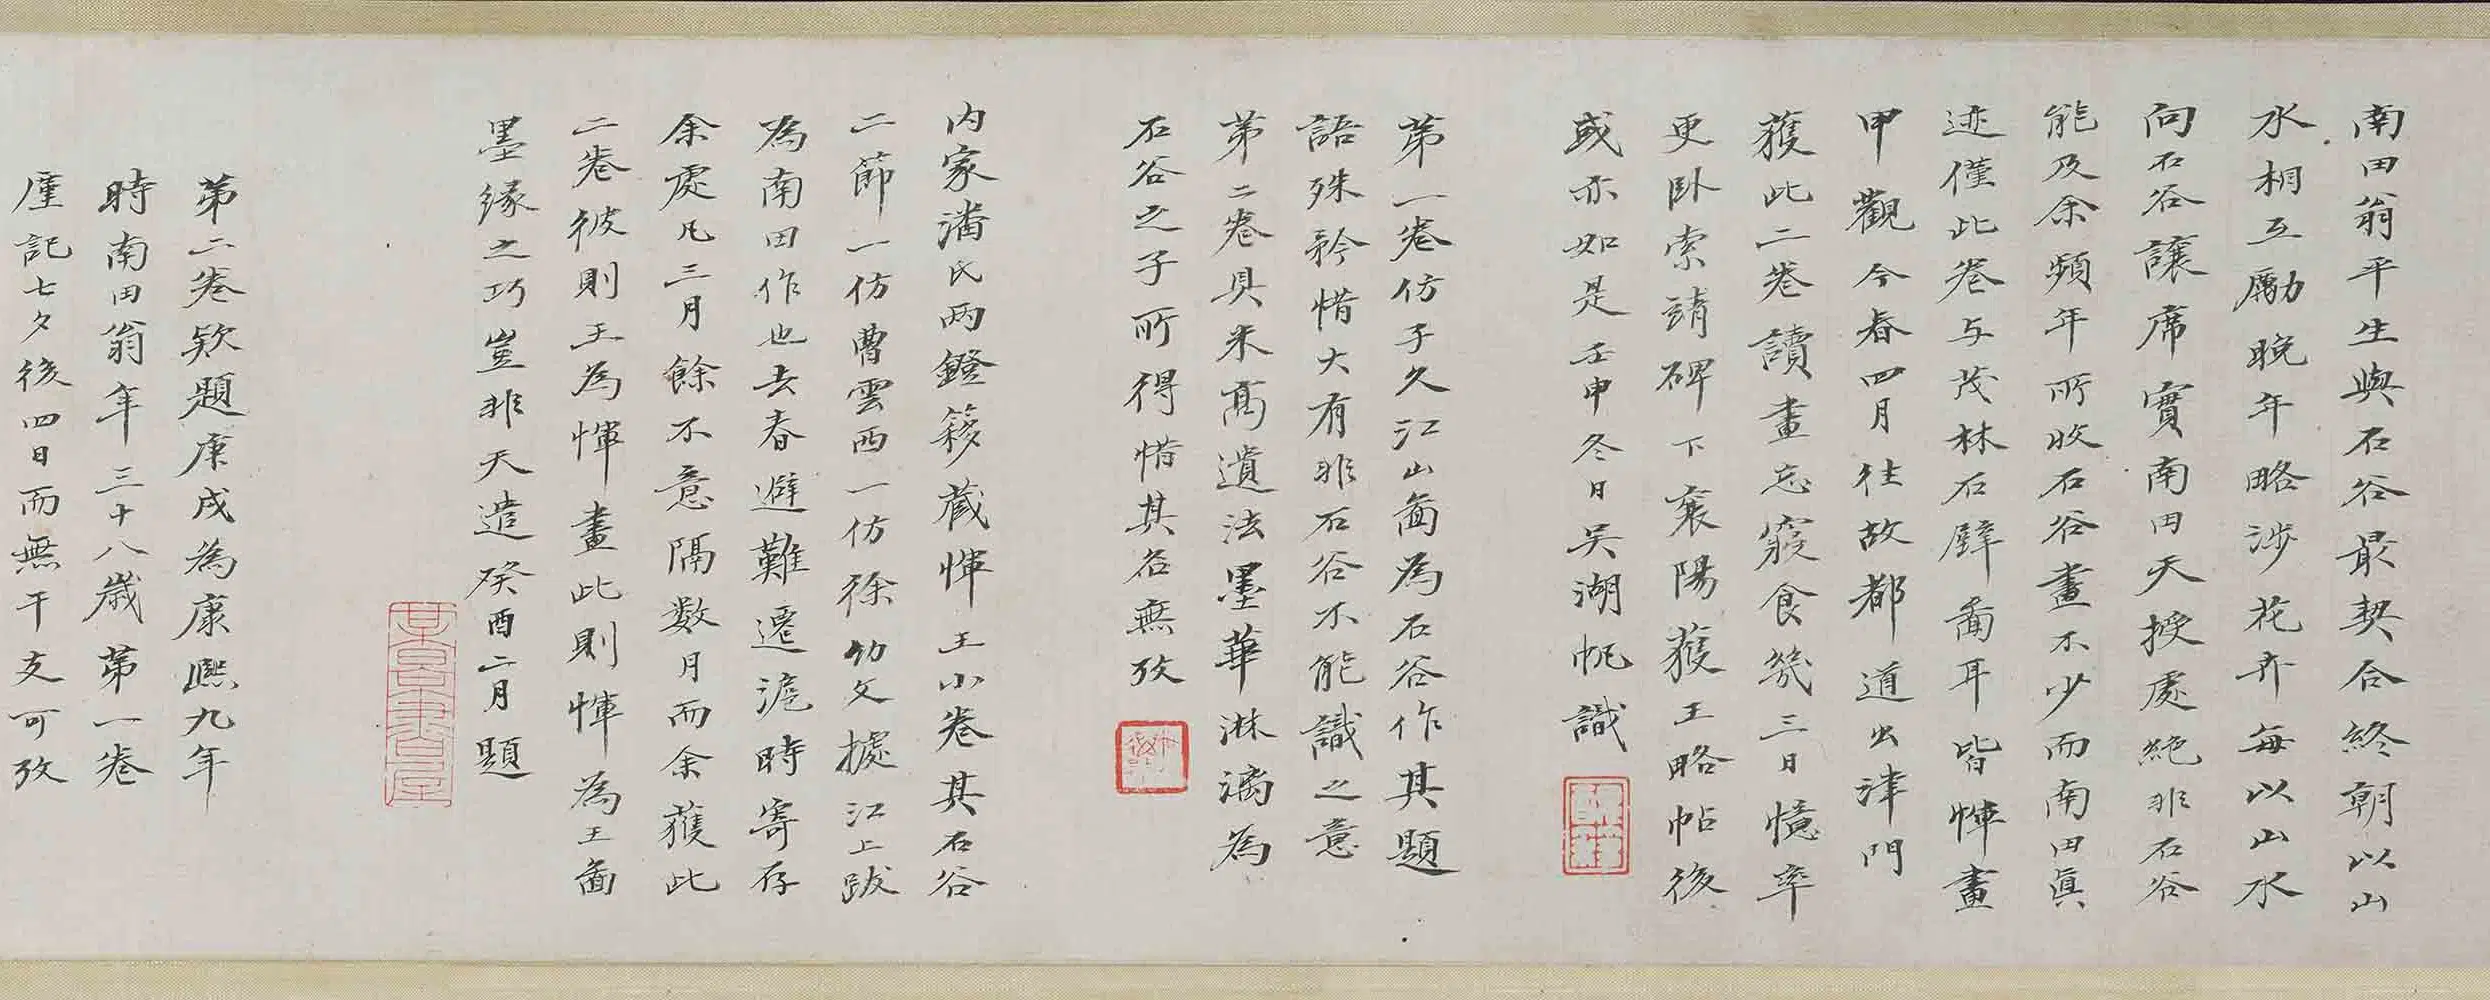 南田翁平生與石谷最契合終朝以山
水相互勵晚年略涉花卉每以山水
向石谷讓席實南田天授處絶非石谷
能及余頻年所收石谷畫不少而南田眞
迹僅此卷与茂林石壁啚耳皆惲畫
甲觀今春四月往故都道出津門
獲此二卷讀畫忘寢食幾三日憶率
更卧索靖碑下襄陽獲王略帖後
或亦如是壬申冬日吴湖帆識
第一卷仿子久江山啚為石谷作其題
語殊矜惜大有非石谷不能識之意
第二卷具米髙遺法墨華淋漓為
石谷之子所得惜其名無攷
内家潘氏兩鐙簃藏惲王小卷其石谷
二節一仿曹雲西一仿徐幼文據江上跋
為南田作也去春避難遷滬時寄存
余處凡三月餘不意隔数月而余獲此
二卷彼則王為惲畫此則惲為王啚
墨緣之巧豈非天造癸酉二月題
第二卷欵題庚戌為康熙九年
時南田翁年三十八歲第一卷
廑記七夕後四日而無干支可攷